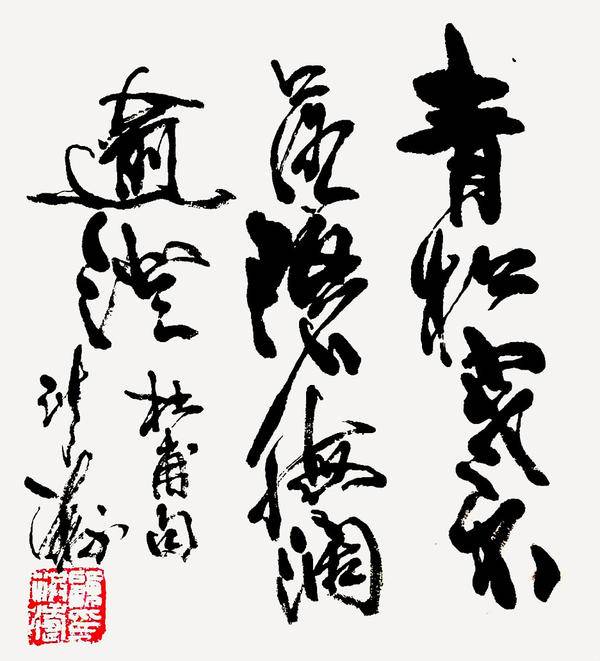 青松寒不
落碧海濶
逾澄
杜甫句